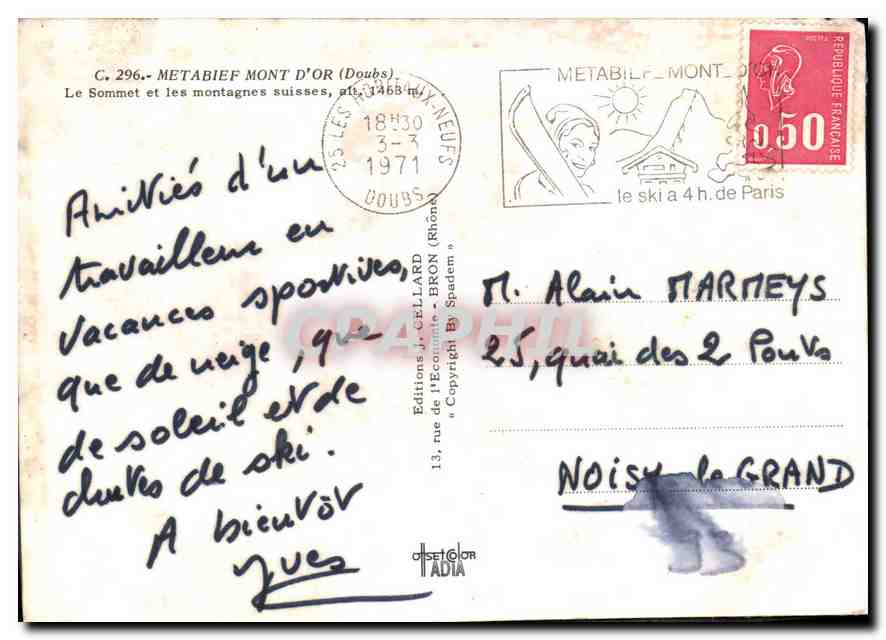 C. 296.- METABIEF MONT D'OR (Doubs)
Le Sommet et les montagnes suisses, alt. 1463 m.
25 LES HOPITAUX-NEUFS
18H30
3-3
1971
DOUBS
METABIEF_ MONT_ D'OR
le ski a 4 h. de Paris
REPUBLIQUE FRANÇAISE
POSTES
0,50
Amitiés d'un
travailleur en
vacances sportives,
que de neige, que
de soleil et de
chutes de ski.
A bientôt
Yves
Editions J. CELLARD
13, rue de l'Economie - BRON (Rhône)
« Copyright By Spadem »
M. Alain MARMEYS
25, quai des 2 Ponts
NOISY le GRAND
OffsetColor
IADIA
CPAPHIL